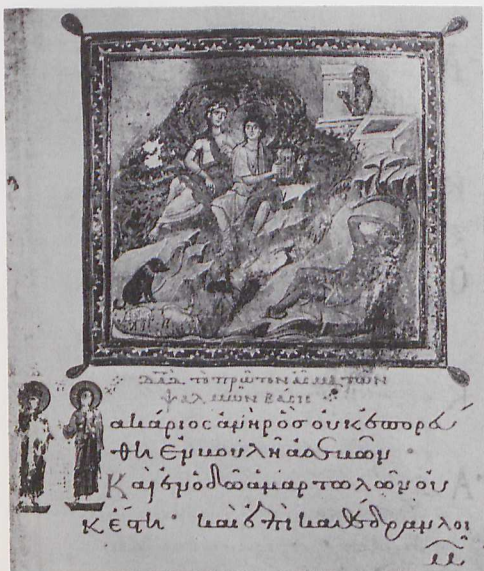 ΔΑΔ ΤΟ ΠΡΩΤΟΝ ΑΣΜΑ ΤΩΝ
ΨΑΛΜΩΝ
ακάριος ἀνὴρ ὃς οὐκ ἐπορεύ
θη ἐν βουλῇ ἀσεβῶν ·
Καὶ ἐν ὁδῷ ἁμαρτωλῶν οὐ
κ ἔστη · καὶ ἐπὶ καθέδραν λοι